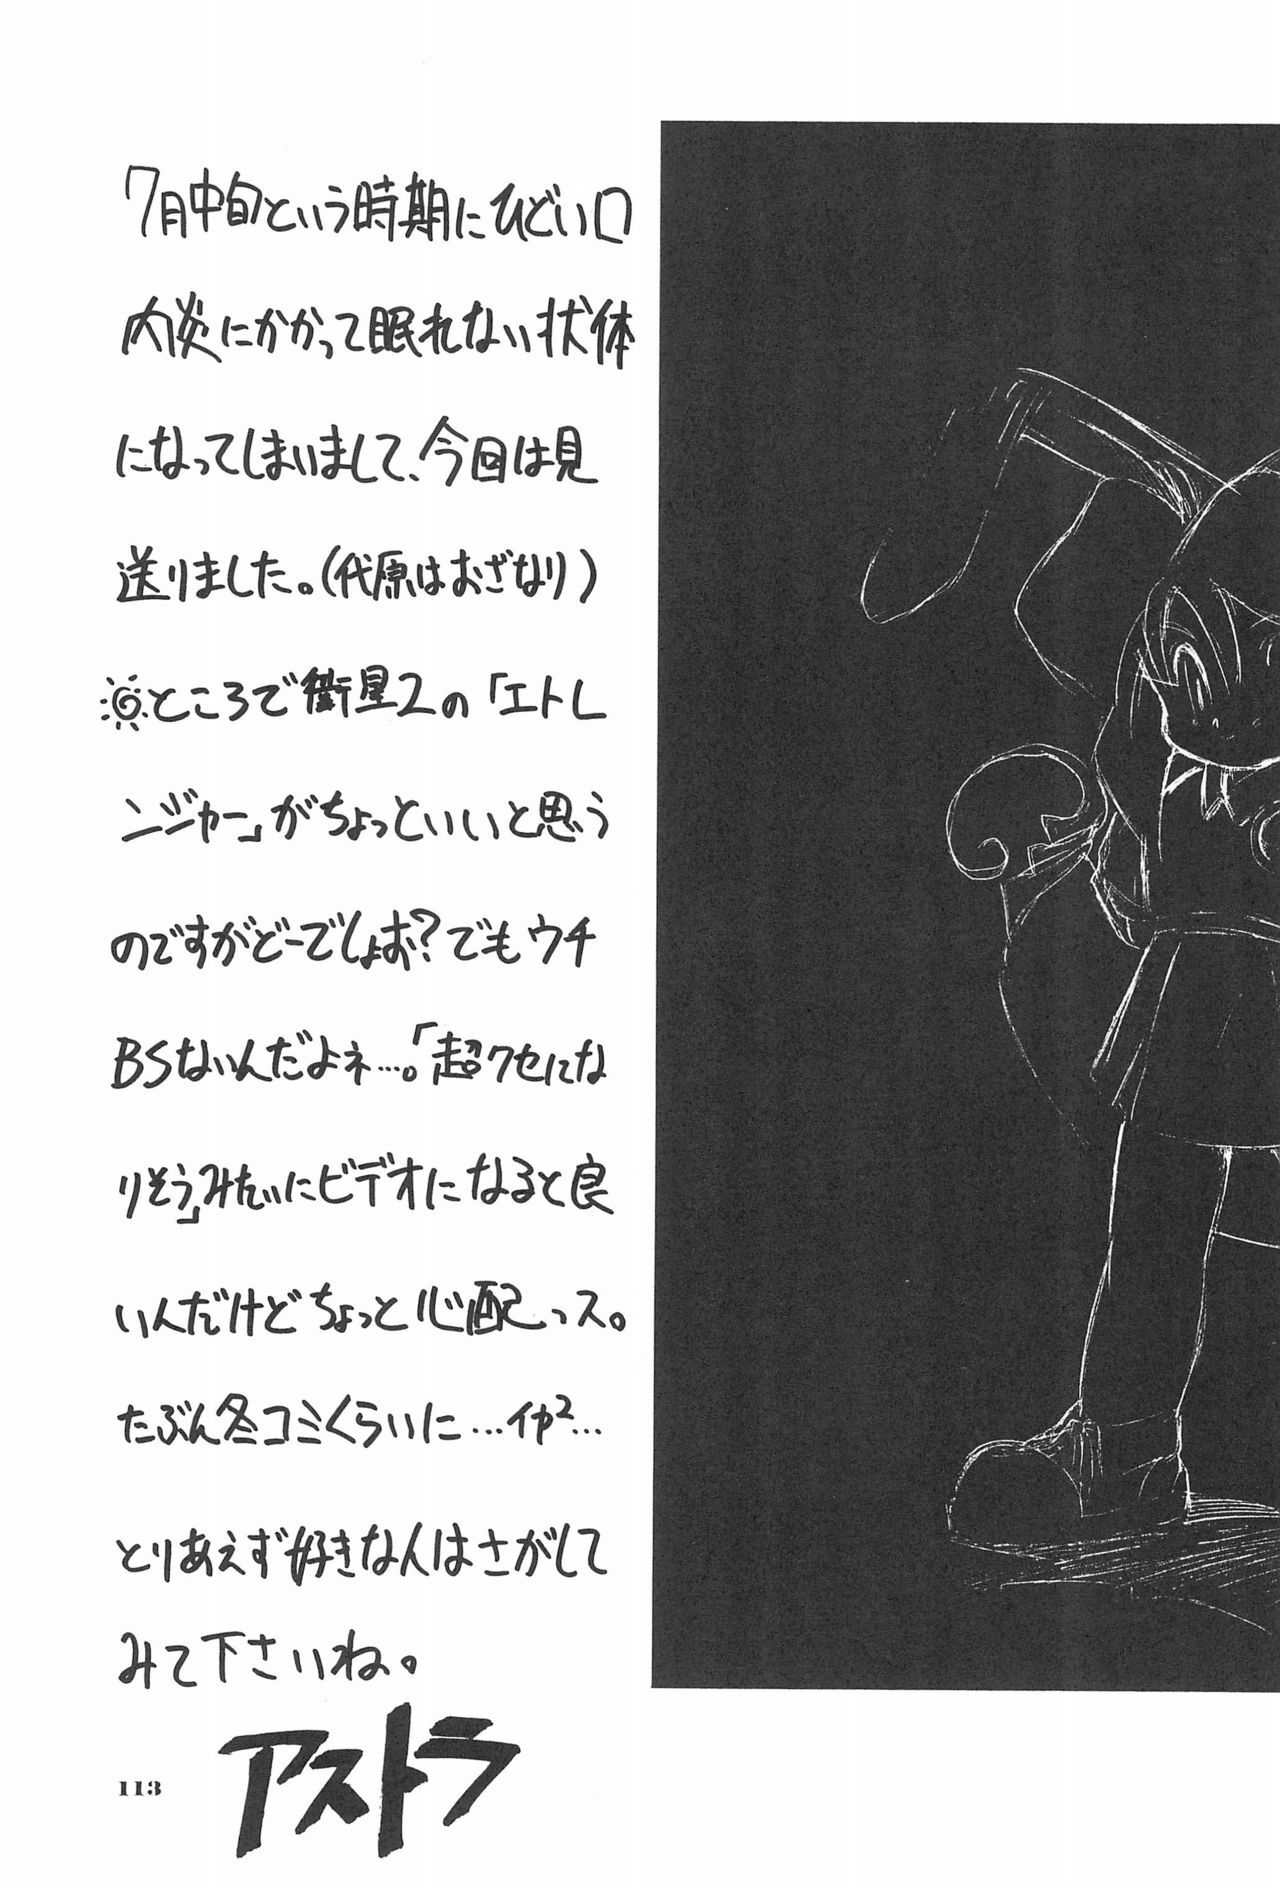 7月中旬という時期にひどい口
内炎にかかって眠れない状体
になってしまいまして、今回は見
送りました。(代原はおざなり)
ところで衛星2の「エトレ
ンジャー」がちょっといいと思う
のですがどーでしょお?でもウチ
BSないんだよネ…。「超クセにな
りそう」みたいにビデオになると良
いんだけどちょっと心配っス。
たぶん冬コミくらいに…イヤ²…
とりあえず好きな人はさがして
みて下さいね。
アストラ
113